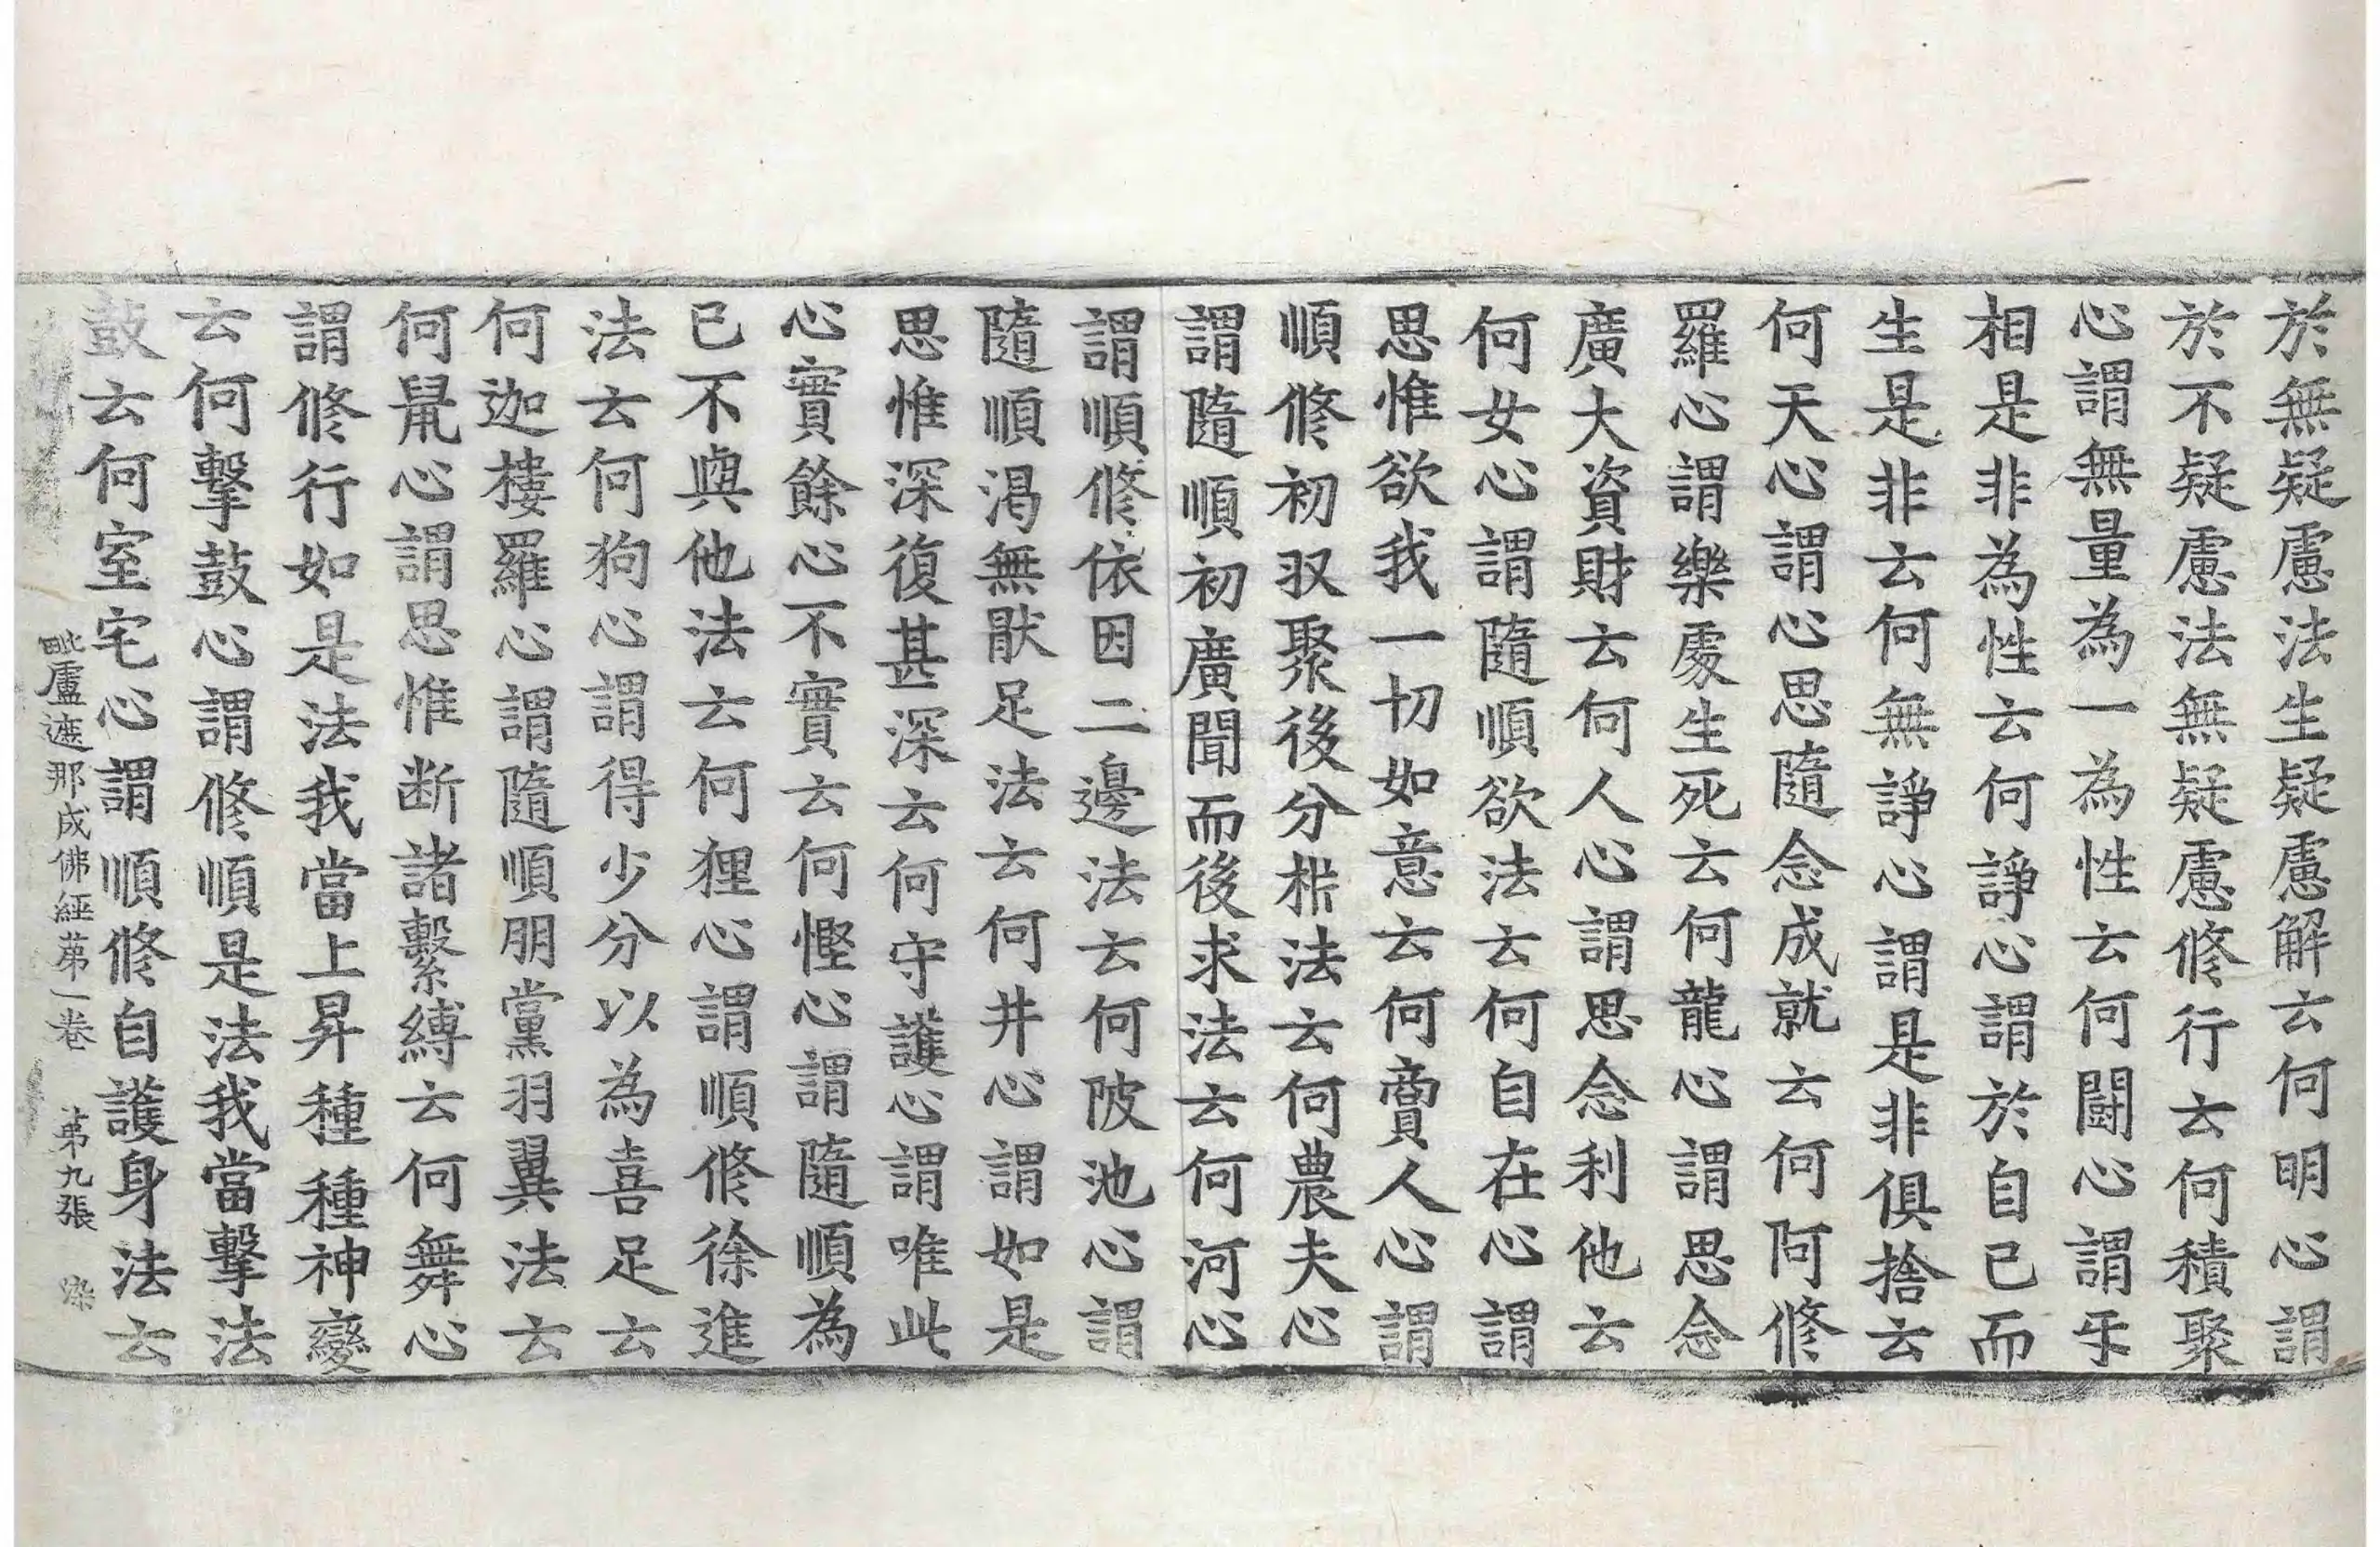 於無疑慮法生疑慮解云何明心謂
於不疑慮法無疑慮修行云何積聚
心謂無量為一為性云何闘心謂㸦
相是非為性云何諍心謂於自己而
生是非云何無諍心謂是非俱捨云
何天心謂心思隨念成就云何阿修
羅心謂樂處生死云何龍心謂思念
廣大資財云何人心謂思念利他云
何女心謂隨順欲法云何自在心謂
思惟欲我一切如意云何商人心謂
順修初収聚後分㭊法云何農夫心
謂隨順初廣聞而後求法云何河心
謂順修依因二邊法云何陂池心謂
隨順渴無猒足法云何井心謂如是
思惟深復甚深云何守護心謂唯此
心實餘心不實云何慳心謂隨順為
已不與他法云何狸心謂順修徐進
法云何狗心謂得少分以為喜足云
何迦樓羅心謂隨順朋黨羽翼法云
何鼠心謂思惟断諸繫縛云何舞心
謂修行如是法我當上昇種種神變
云何擊鼓心謂修順是法我當擊法
鼓云何室宅心謂順修自護身法云
毗盧遮那成佛經苐一卷 苐九張 染